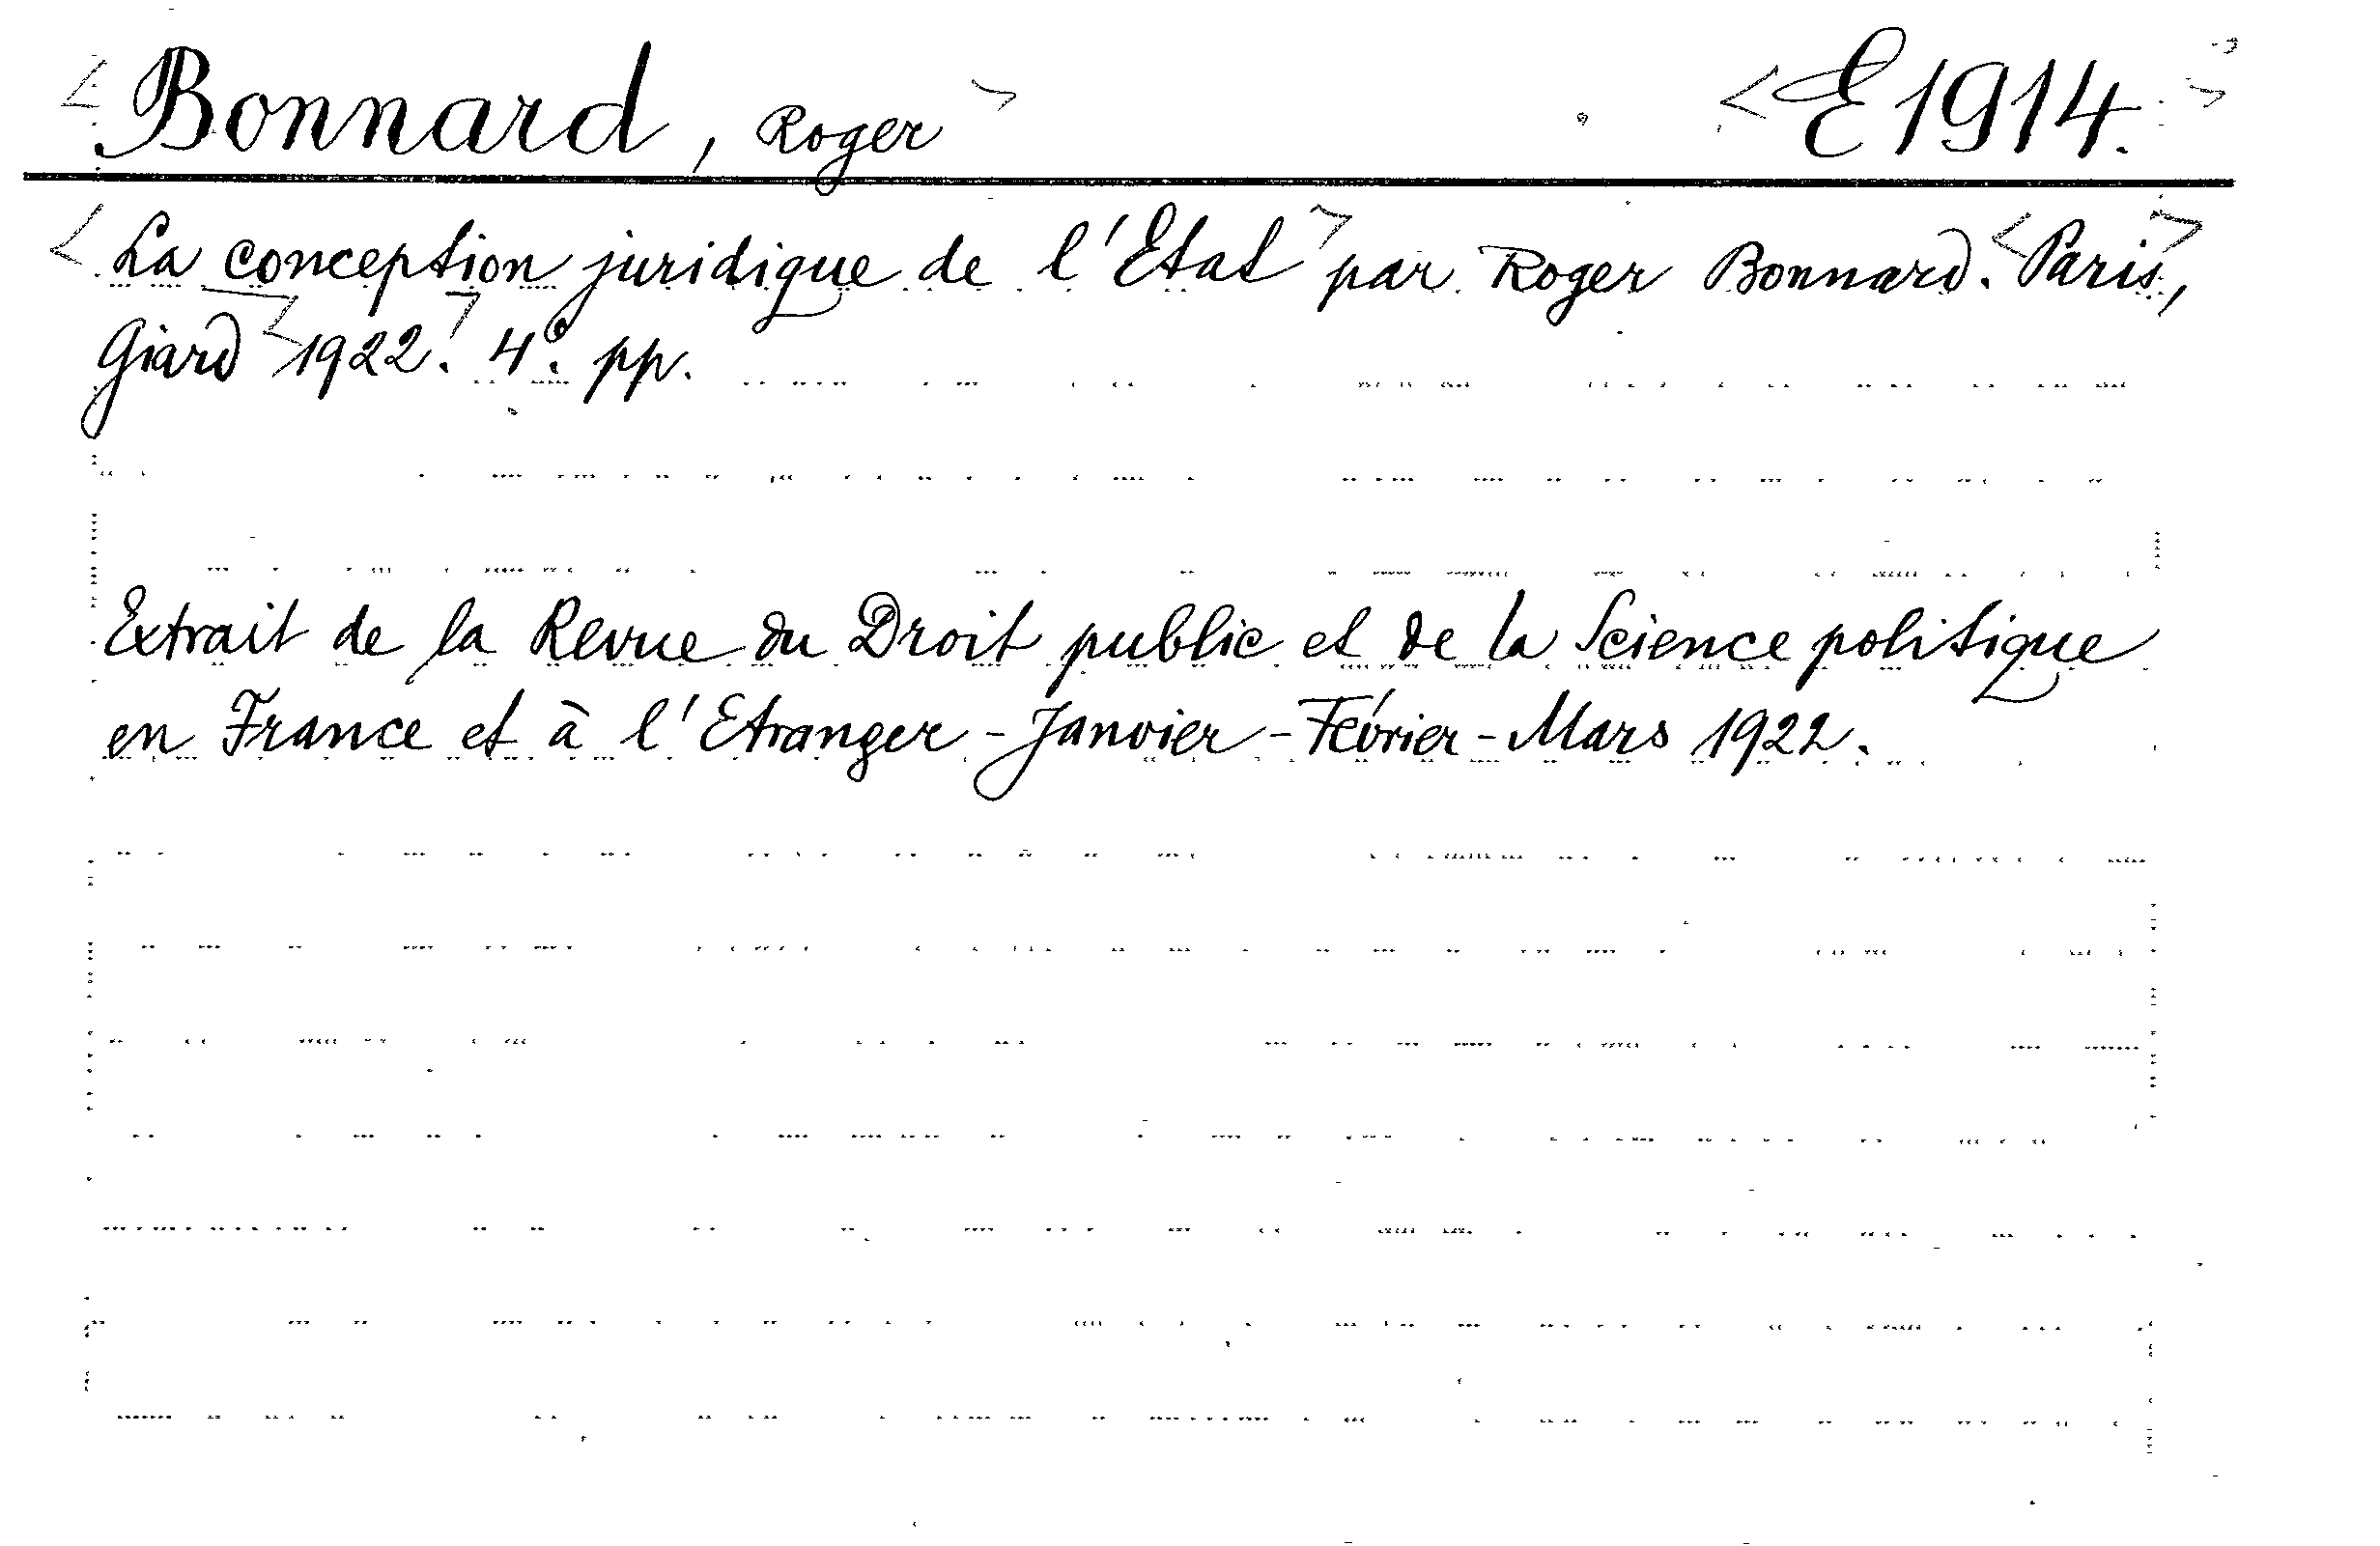 <Bonnard, Roger> <E1914.>
<La conception juridique de l'Etat> par Roger Bonnard. <Paris,>
Giard <1922.> 4°. pp.
Extrait de la Revue du Droit public et de la Science politique
en France et à l'Etranger - Janvier - Février - Mars 1922.